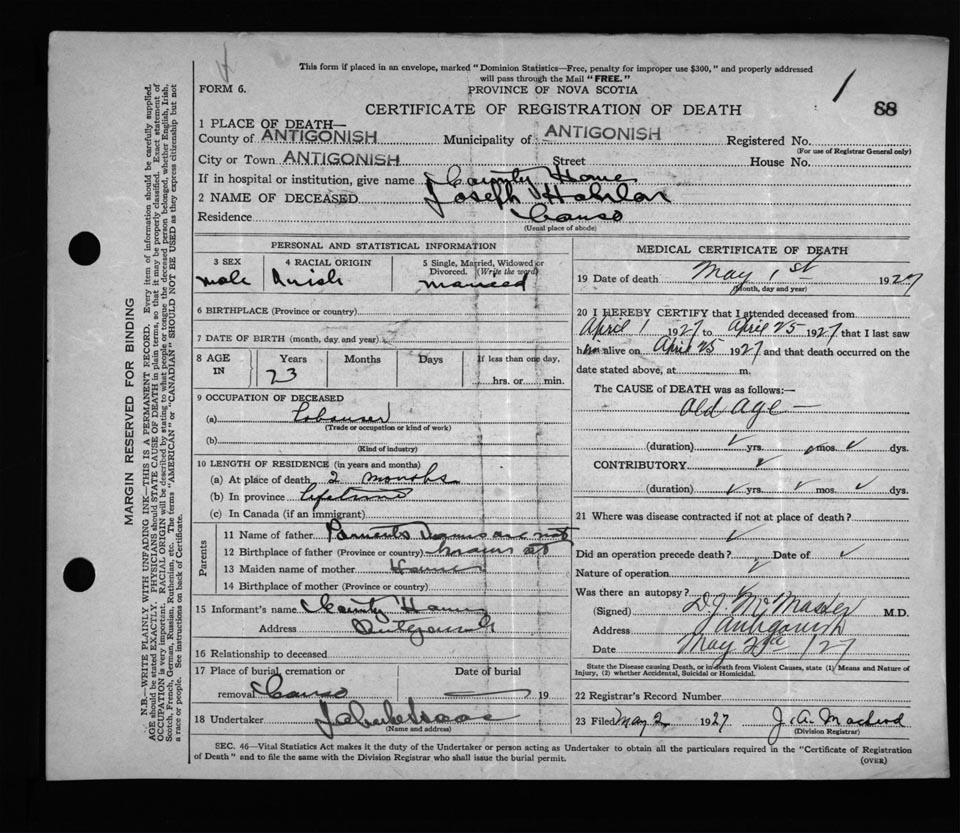 This form if placed in an envelope, marked "Dominion Statistics—Free, penalty for improper use $300," and properly addressed
will pass through the Mail "FREE."
1
88
FORM 6.
PROVINCE OF NOVA SCOTIA
CERTIFICATE OF REGISTRATION OF DEATH
1 PLACE OF DEATH—
County of ANTIGONISH Municipality of ANTIGONISH Registered No.
(For use of Registrar General only)
City or Town ANTIGONISH Street House No.
If in hospital or institution, give name County Home
2 NAME OF DECEASED Joseph
Residence Canso
(Usual place of abode)
PERSONAL AND STATISTICAL INFORMATION
3 SEX 4 RACIAL ORIGIN 5 Single, Married, Widowed or Divorced. (Write the word)
male Irish married
6 BIRTHPLACE (Province or country)
7 DATE OF BIRTH (month, day, and year)
8 AGE IN Years Months Days If less than one day,
hrs. or min.
9 OCCUPATION OF DECEASED
(a) Labourer
(Trade or occupation or kind of work)
(b)
(Kind of industry)
10 LENGTH OF RESIDENCE (in years and months)
(a) At place of death 2 months
(b) In province lifetime
(c) In Canada (if an immigrant)
Parents
11 Name of father Parents are not
12 Birthplace of father (Province or country)
13 Maiden name of mother Home
14 Birthplace of mother (Province or country)
15 Informant's name County Home
Address Antigonish
16 Relationship to deceased
17 Place of burial, cremation or Date of burial
removal Canso 19
18 Undertaker
(Name and address)
MEDICAL CERTIFICATE OF DEATH
19 Date of death May 1st 1927
(Month, day and year)
20 I HEREBY CERTIFY that I attended deceased from
April 1 1927 to April 25 1927 that I last saw
him alive on April 25 1927 and that death occurred on the
date stated above, at m.
The CAUSE of DEATH was as follows:—
Old Age —
(duration) yrs. mos. dys.
CONTRIBUTORY
(duration) yrs. mos. dys.
21 Where was disease contracted if not at place of death?
Did an operation precede death? Date of
Nature of operation
Was there an autopsy?
(Signed) D J McMaster M.D.
Address Antigonish
Date May 2nd 1927
State the Disease causing Death, or in death from Violent Causes, state (1) Means and Nature of
Injury, (2) whether Accidental, Suicidal or Homicidal.
22 Registrar's Record Number
23 Filed May 2 1927 J. A. Macleod
(Division Registrar)
SEC. 46—Vital Statistics Act makes it the duty of the Undertaker or person acting as Undertaker to obtain all the particulars required in the "Certificate of Registration
of Death" and to file the same with the Division Registrar who shall issue the burial permit.
(OVER)
MARGIN RESERVED FOR BINDING
N.B.—WRITE PLAINLY WITH UNFADING INK—THIS IS A PERMANENT RECORD. Every item of information should be carefully supplied.
AGE should be stated EXACTLY. PHYSICIANS should STATE CAUSE OF DEATH in plain terms, so that it may be properly classified. Exact statement of
OCCUPATION is very important. RACIAL ORIGIN will be described by stating to what people or tongue the deceased person belonged, whether English, Irish,
Scotch, French, German, Russian, Ruthenian, etc. The terms "AMERICAN" or "CANADIAN" SHOULD NOT BE USED as they express citizenship but not
a race or people. See instructions on back of Certificate.